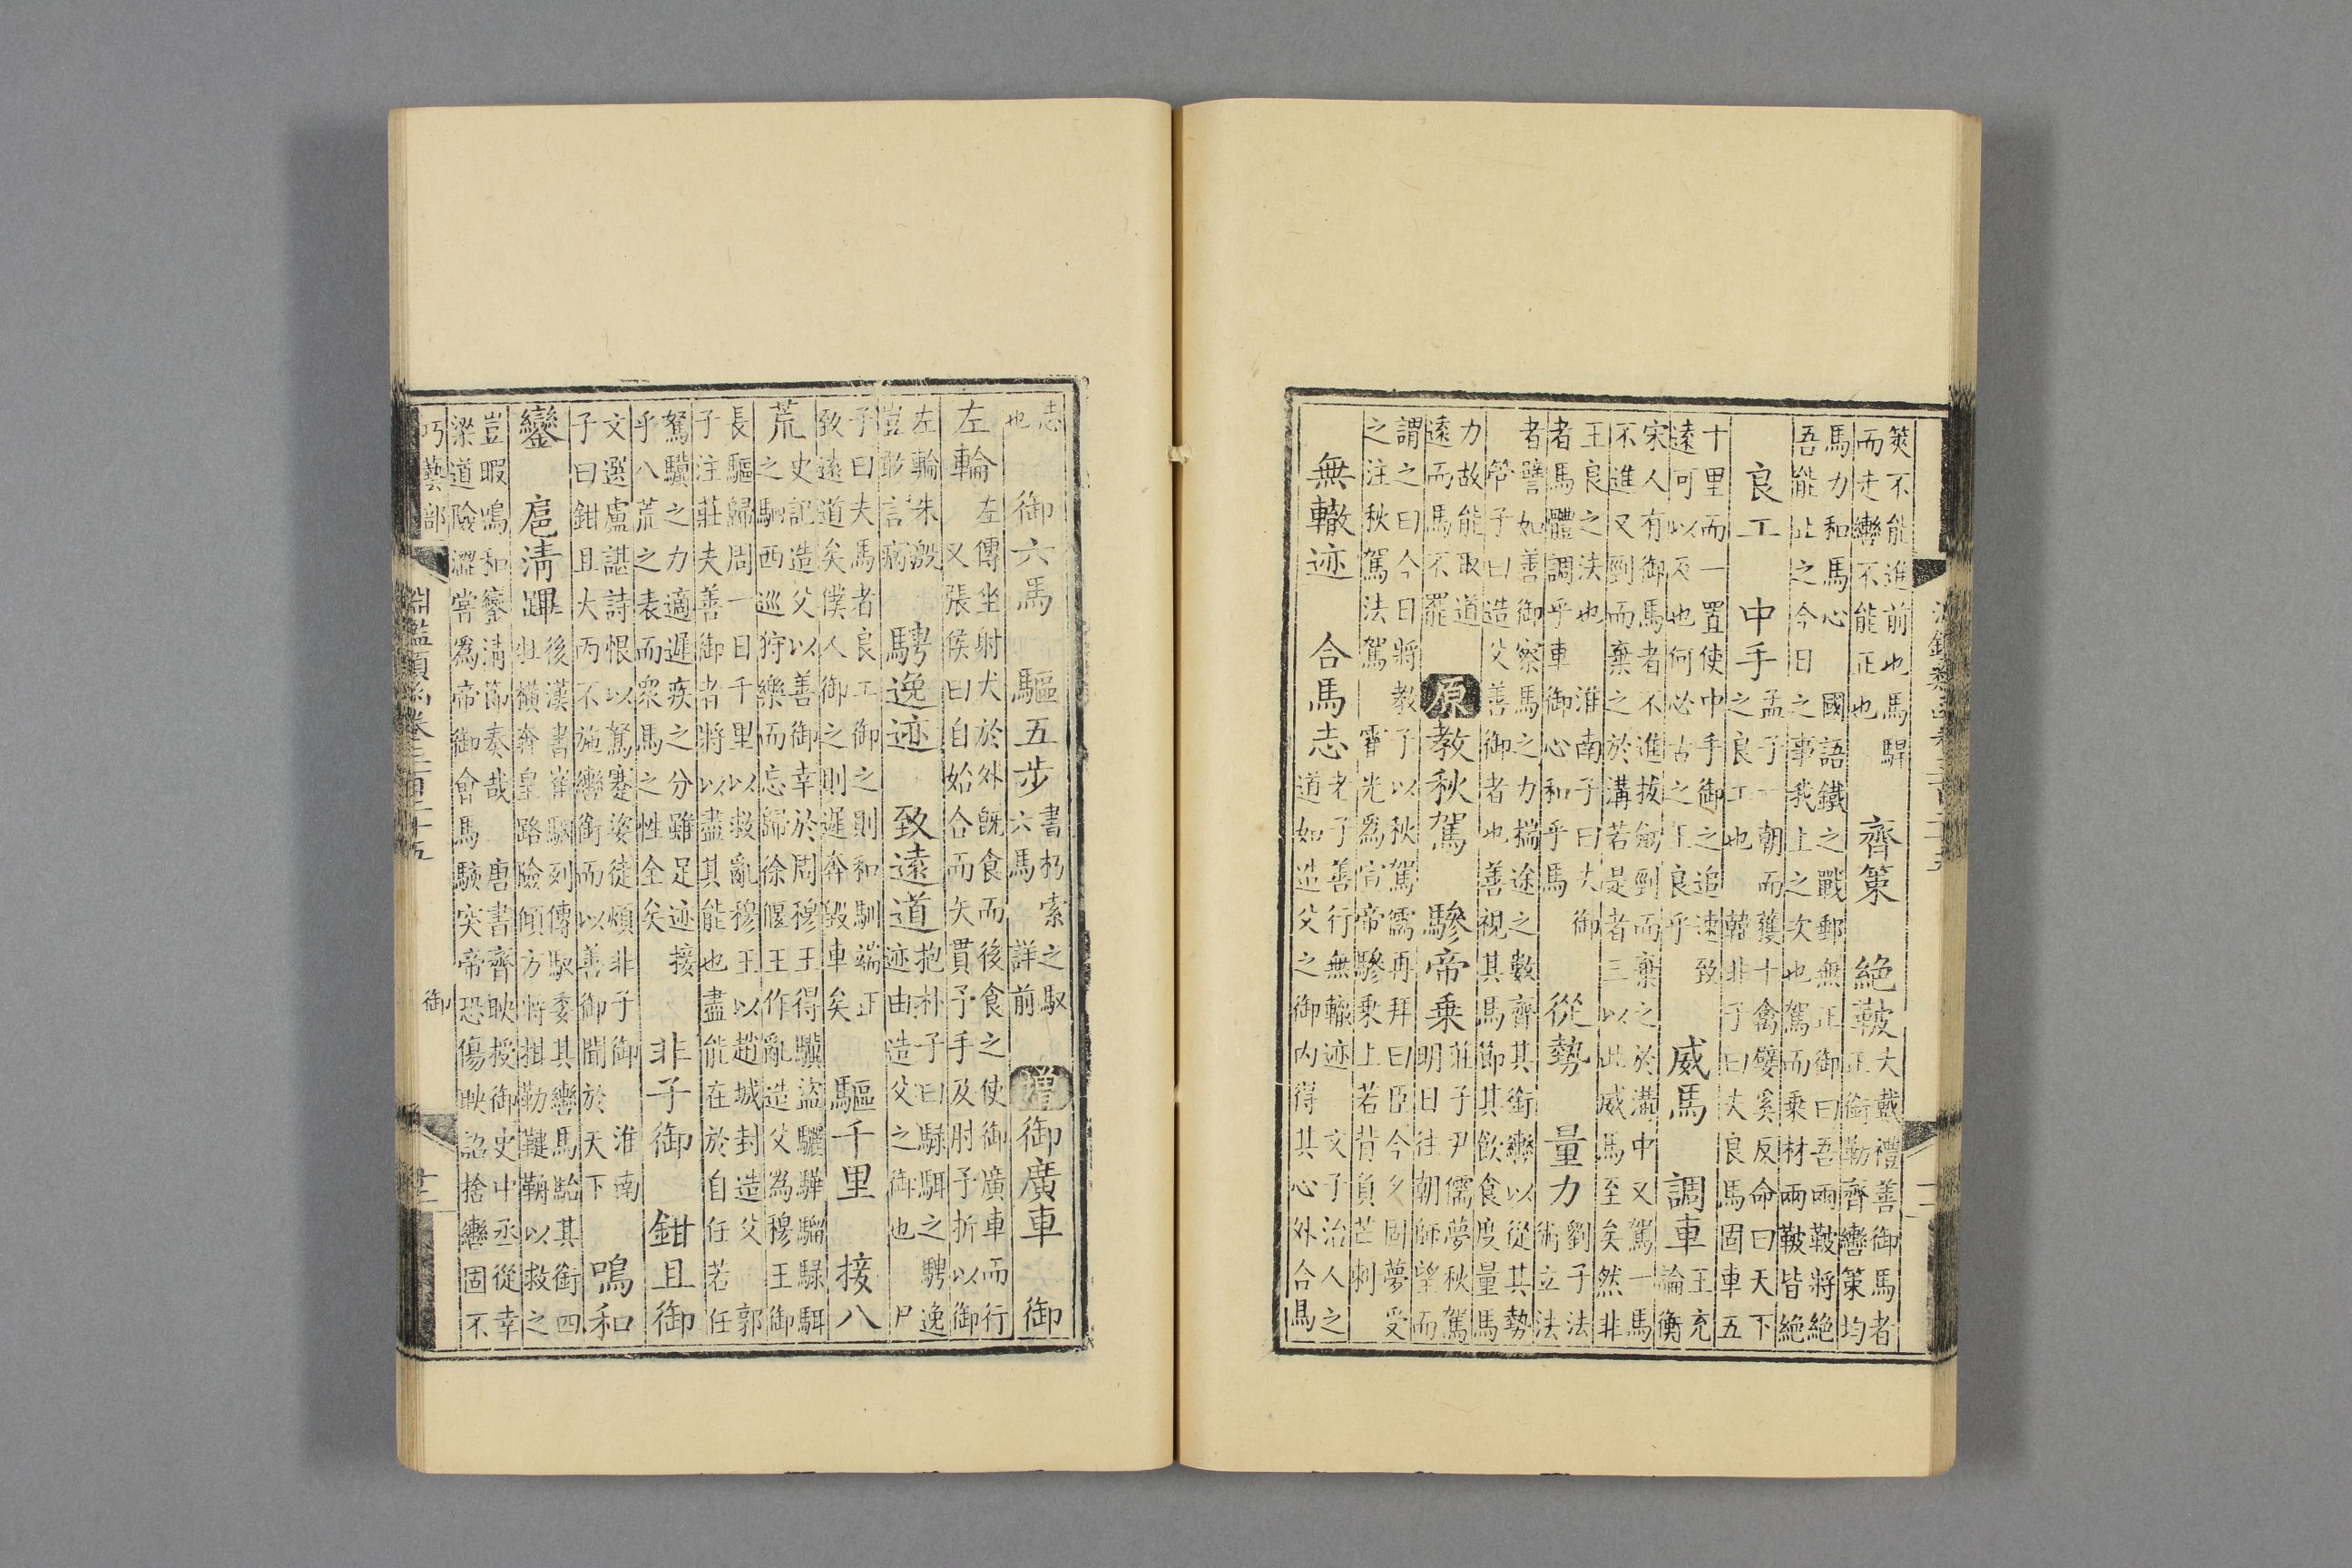 筴不能進前也馬駻
而走轡不能正也
齊策　絶鞁
大戴禮善御馬者
正銜勒齊轡策均
馬力和馬心　國語鐵之戰郵無正御曰吾兩鞁將絶
吾能止之今日之事我上之次也駕而乘材兩鞁皆絶
良工　中手
孟子一朝而獲十禽嬖奚反命曰天下
之良工也　韓非子曰夫良馬固車五
十里而一置使中手御之追速致
遠可以及也何必古之王良乎
威馬　調車
王充
論衡
宋人有御馬者不進拔劍剄而棄之於溝中又駕一馬
不進又剄而棄之於溝若是者三以此威馬至矣然非
王良之法也　淮南子曰大御
者馬體調乎車御心和乎馬
從勢　量力
劉子法
術立法
者譬如善御察馬之力揣途之數齊其銜轡以從其勢
管子曰造父善御者也善視其馬節其飲食度量馬
力故能取道
遠而馬不罷
原教秋駕　驂帝乗
莊子尹儒夢秋駕
明日往朝師望而
謂之曰今日將教子以秋駕儒再拜曰臣今夕固夢受
之注秋駕法駕　霍光爲宣帝驂乗上若背負芒刺
無轍迹　合馬志
老子善行無轍迹　文子治人之
道如造父之御内得其心外合馬
志
也
御六馬　驅五步
書朽索之馭
六馬　詳前
增御廣車　御
左輪
左傳坐射犬於外旣食而後食之使御廣車而行
又張侯曰自始合而矢貫予手及肘予折以御
左輪朱殷
豈敢言病
騁逸迹　致遠道
抱朴子曰騄駬之騁逸
迹由造父之御也　尸
子曰夫馬者良工御之則和馴端正
致遠道矣僕人御之則遲奔毀車矣
驅千里　接八
荒
史記造父以善御幸於周穆王得驥盜驪驊騮騄駬
之駟西巡狩樂而忘歸徐偃王作亂造父為穆王御
長驅歸周一日千里以救亂穆王以趙城封造父　郭
子注莊夫善御者將以盡其能也盡能在於自任若任
駑驥之力適遲疾之分雖足迹接
乎八荒之表而衆馬之性全矣
非子御　鉗且御
文選盧諶詩恨以駑蹇姿徒煩非子御　淮南
子曰鉗且大丙不施轡銜而以善御聞於天下
鳴和
鑾　扈淸蹕
後漢書崔駰列傳馭委其轡馬駘其銜四
牡橫奔皇路險傾方將拑勒鞬鞅以救之
豈暇鳴和鑾淸節奏哉　唐書齊映授御史中丞從幸
梁道險澀嘗爲帝御會馬駭突帝恐傷映詔捨轡固不
巧藝部　御
淵鑑類函卷三百二十五